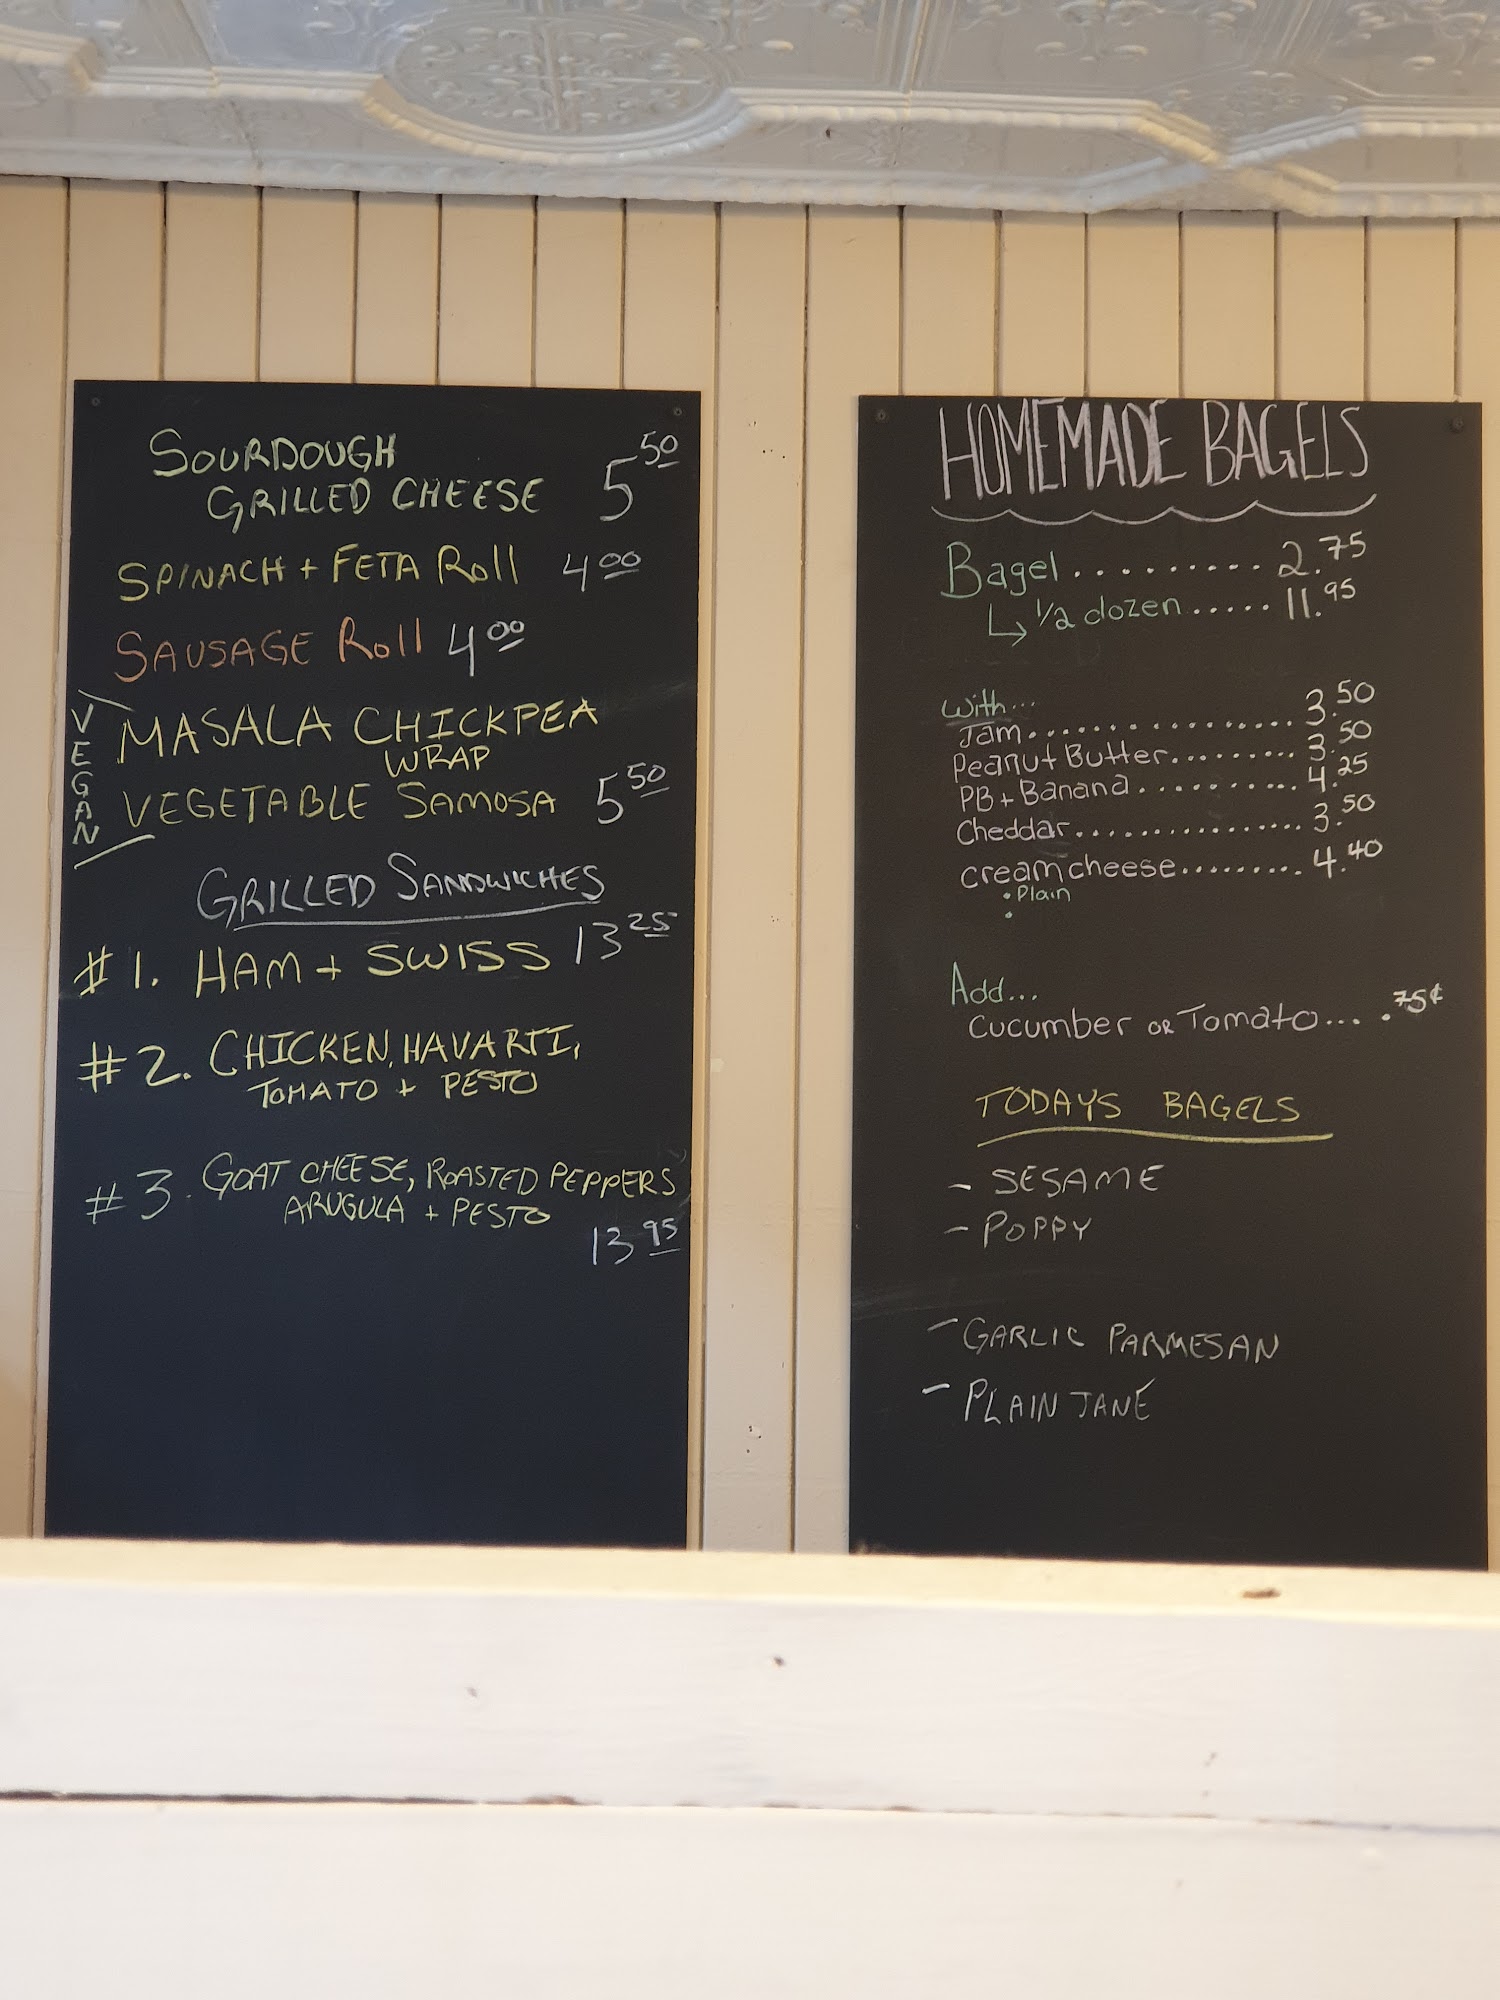 SOURDOUGH
GRILLED CHEESE 5 50
SPINACH + FETA Roll 4 00
SAUSAGE Roll 4 00
VEGAN
MASALA CHICKPEA
WRAP
VEGETABLE SAMOSA 5 50
GRILLED SANDWICHES
#1. HAM + SWISS 13 25
#2. CHICKEN, HAVARTI,
TOMATO + PESTO
#3. GOAT CHEESE, ROASTED PEPPERS
ARUGULA + PESTO
13 95
HOMEMADE BAGELS
Bagel.......... 2.75
↳ 1/2 dozen..... 11.95
With...
Jam................. 3.50
Peanut Butter......... 3.50
PB + Banana.......... 4.25
Cheddar................ 3.50
creamcheese.......... 4.40
• Plain
•
Add...
Cucumber OR Tomato... .75¢
TODAYS BAGELS
- SESAME
- POPPY
- GARLIC PARMESAN
- PLAIN JANE